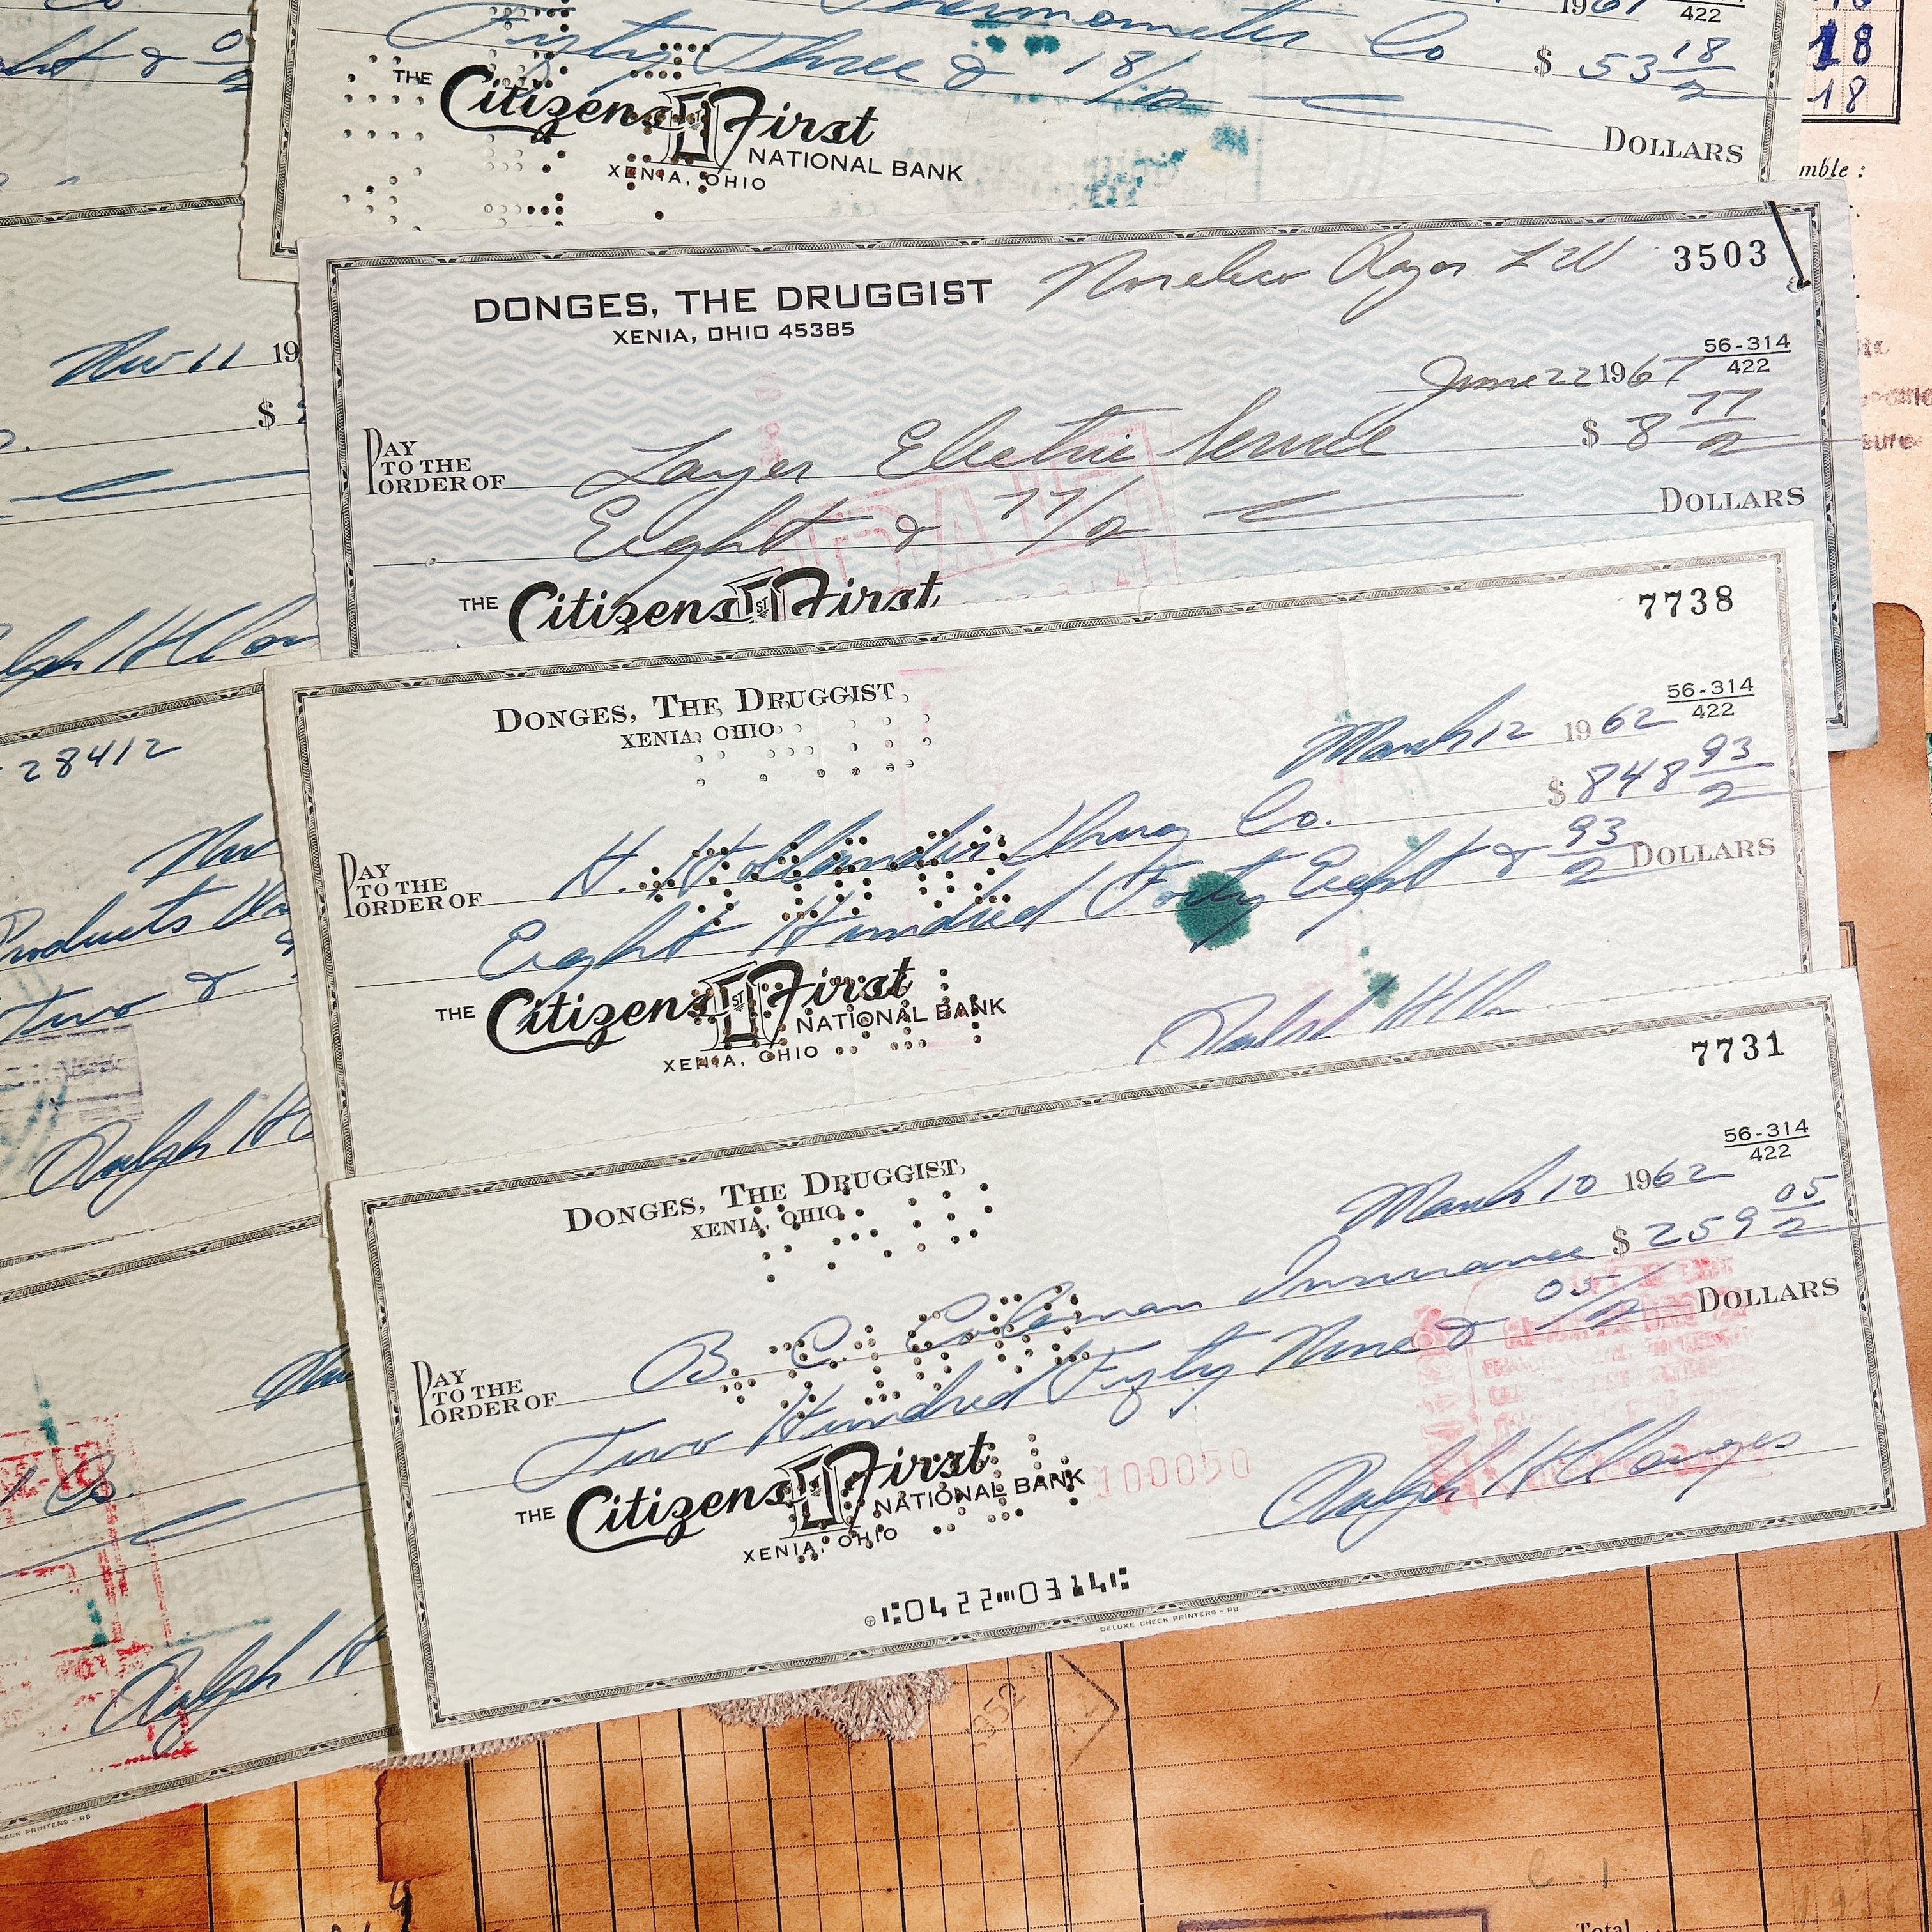 Thermometer Co $ 53 18/
422
18
18
Fifty Three & 18/
DOLLARS
THE Citizens 1ST First
NATIONAL BANK
XENIA, OHIO
mble :
DONGES, THE DRUGGIST
XENIA, OHIO 45385
Norelco Razor
3503
56-314
422
June 22 1967
PAY TO THE ORDER OF Layer Electric Service $ 8 77/
Eight & 77/ DOLLARS
THE Citizens 1ST First
7738
DONGES, THE DRUGGIST
XENIA, OHIO
56-314
422
March 12 1962
$ 848 93/
PAY TO THE ORDER OF H. Hollander Drug Co.
Eight Hundred Forty Eight & 93/ DOLLARS
THE Citizens 1ST First
NATIONAL BANK
XENIA, OHIO
Ralph H
7731
DONGES, THE DRUGGIST
XENIA, OHIO
56-314
422
March 10 1962
$ 259 05/
PAY TO THE ORDER OF B. C. Coleman Insurance
Two Hundred Fifty Nine & 05/ DOLLARS
THE Citizens 1ST First
NATIONAL BANK
XENIA, OHIO
100050
Ralph H Donges
⑆0422⑉0314⑆
DELUXE CHECK PRINTERS - RB
Nov 11 19
$
28412
Nov
Products
Two &
Ralph H
Nov
Co.
Ralph H
CHECK PRINTERS - RB
1352
Total